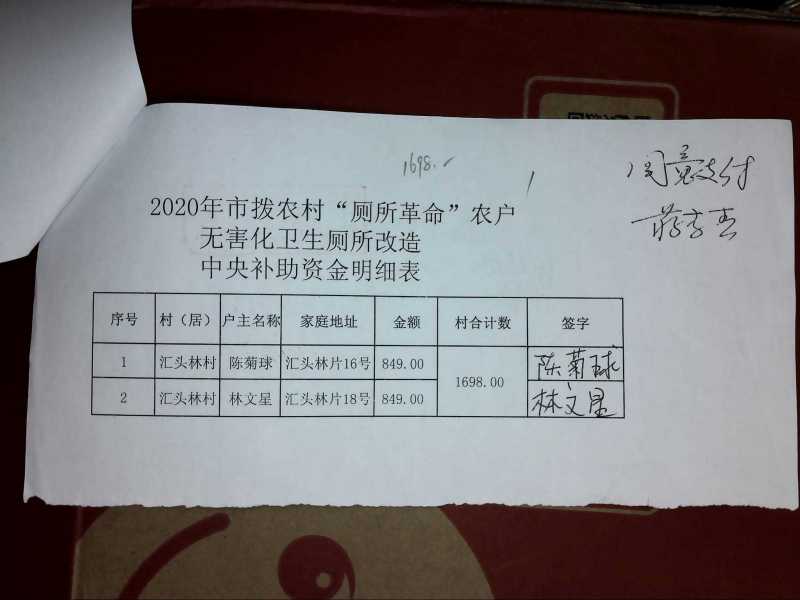 1698.
同意支付
2020年市拨农村“厕所革命”农户
无害化卫生厕所改造
中央补助资金明细表
序号 村（居） 户主名称 家庭地址 金额 村合计数 签字
1 汇头林村 陈菊球 汇头林片16号 849.00 1698.00 陈菊球
2 汇头林村 林文星 汇头林片18号 849.00 林文星